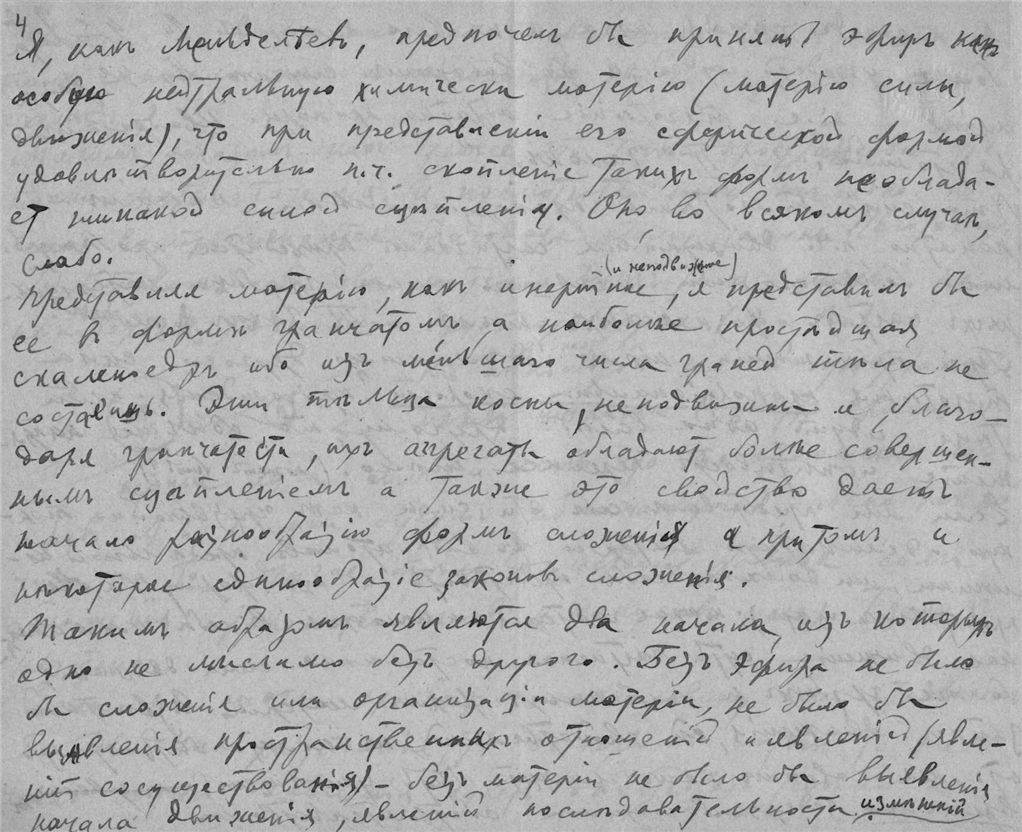 4
Я, какъ Менделѣевъ, предпочелъ бы принять эфиръ какъ
особую нейтральную химически матерію (матерію силы,
движенія), что при представленіи его сферической формой
удовлетворительно п.ч. скопленіе такихъ формъ необлада-
етъ никакой силой сцѣпленія. Оно, во всякомъ случаѣ,
слабо.
(и неподвижное)
Представляя матерію, какъ инертное, я представилъ бы
ее в формѣ гранчатомъ а наиболѣе простѣйшая
скаленоедръ ибо изъ меньшаго числа граней тѣла не
составишь. Эти тѣльца косны, неподвижны и благо-
даря гранчатости, ихъ агрегаты обладаютъ болѣе совершен-
нымъ сцѣпленіемъ а также это свойство даетъ
начало разнообразію формъ сложенія а притомъ и
нѣкоторое единообразіе законовъ сложенія.
Такимъ образомъ являются два начала, изъ которыхъ
одно не мыслимо безъ другого. Безъ эфира не было
бы сложенія или организаціи матеріи, не было бы
выявленія пространственныхъ отношеній и явленій (явле-
ній сосуществованія) – безъ матеріи не было бы выявленія
начала движенія, явленій послѣдовательности измѣненій